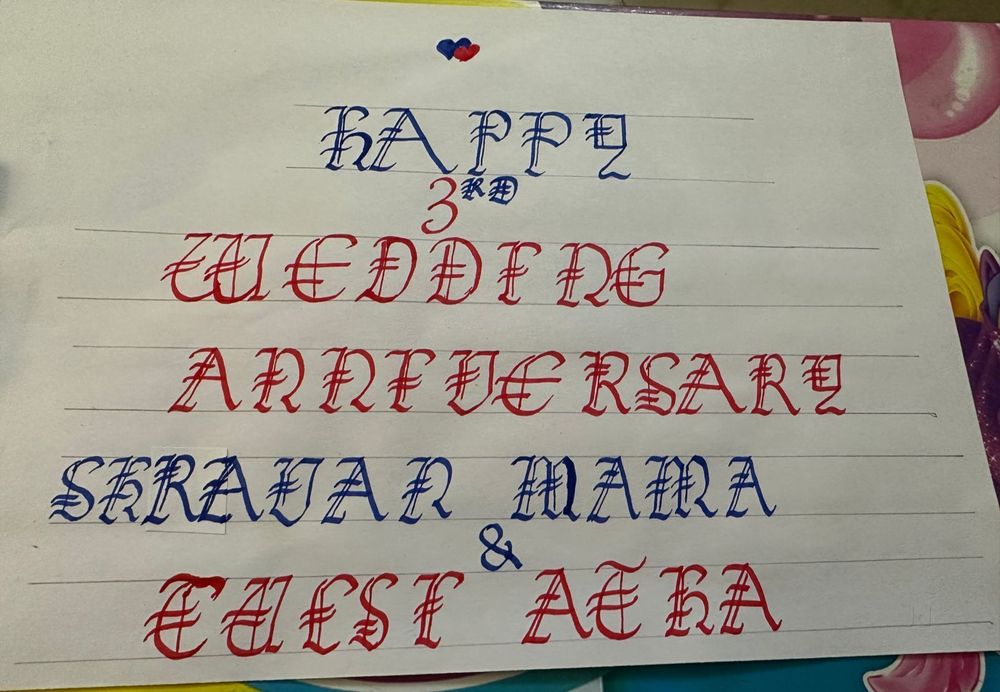 HAPPY
3RD
WEDDING
ANNIVERSARY
SHRAVAN MAMA
&
TULSI ATHA